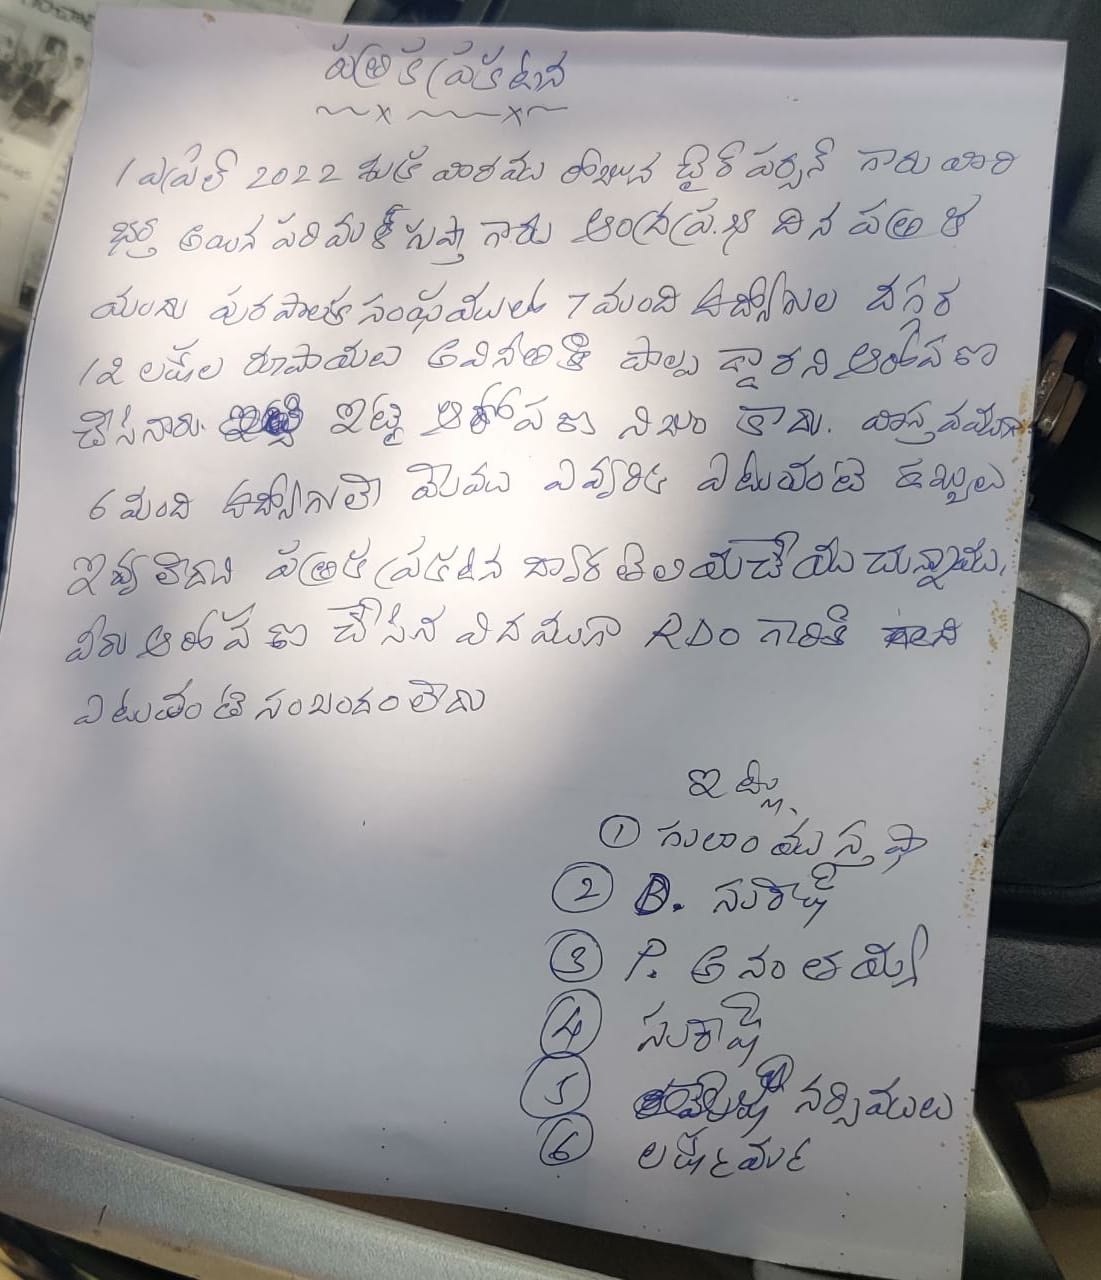 పత్రిక ప్రకటన
1 ఏప్రిల్ 2022 శుక్రవారము రోజున చైర్ పర్సన్ గారు వారి
భర్త అయిన పరిమళ్ గుప్తా గారు ఆంధ్రప్రభ దిన పత్రిక
యందు పురపాలక సంఘము 7 మంది ఉద్యోగుల దగ్గర
12 లక్షల రూపాయలు అవినీతికి పాల్ప డ్డారని ఆరోపణ
చేసినారు. ఇట్టి ఆరోపణ నిజం కాదు. వాస్తవముగా
6 మంది ఉద్యోగులతో మేము ఎవ్వరికి ఎటువంటి డబ్బులు
ఇవ్వలేదని పత్రిక ప్రకటన ద్వారా తెలియచేయు చున్నాము.
వీరు ఆరోపణ చేసిన విదముగా RDO గారికి
ఎటువంటి సంబందం లేదు
ఇట్లు
① గులాం ముస్తఫా
② B. సురేష్
③ P. అనంతయ్య
④ సురేష్
⑤ నర్సిములు
⑥ లక్ష్మమ్మ